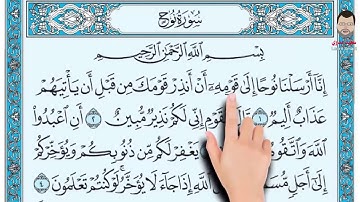 سُورَةُ نُوحٍ
بِسْمِ ٱللَّهِ ٱلرَّحْمَٰنِ ٱلرَّحِيمِ
إِنَّآ أَرْسَلْنَا نُوحًا إِلَىٰ قَوْمِهِۦٓ أَنْ أَنذِرْ قَوْمَكَ مِن قَبْلِ أَن يَأْتِيَهُمْ
عَذَابٌ أَلِيمٌ ١ قَوْمِ إِنِّى لَكُمْ نَذِيرٌ مُّبِينٌ ٢ أَنِ ٱعْبُدُوا۟
ٱللَّهَ وَٱتَّقُوهُ يَغْفِرْ لَكُم مِّن ذُنُوبِكُمْ وَيُؤَخِّرْكُمْ
إِلَىٰٓ أَجَلٍ مُّسَمًّى ٱللَّهِ إِذَا جَآءَ لَا يُؤَخَّرُ لَوْ كُنتُمْ تَعْلَمُونَ ٤